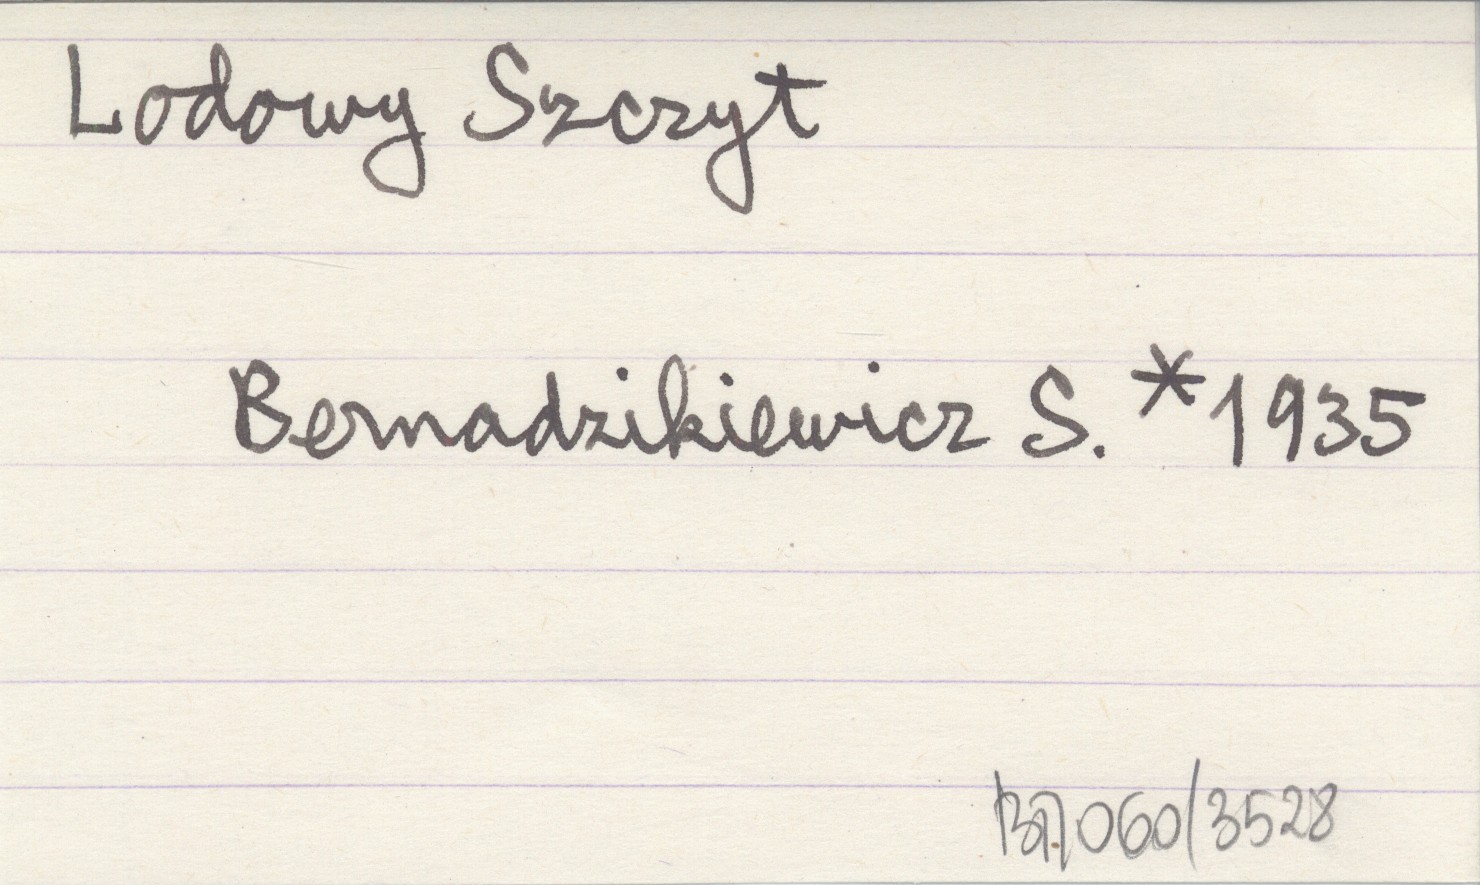 Lodowy Szczyt
Bernadzikiewicz S. *1935
060/3528